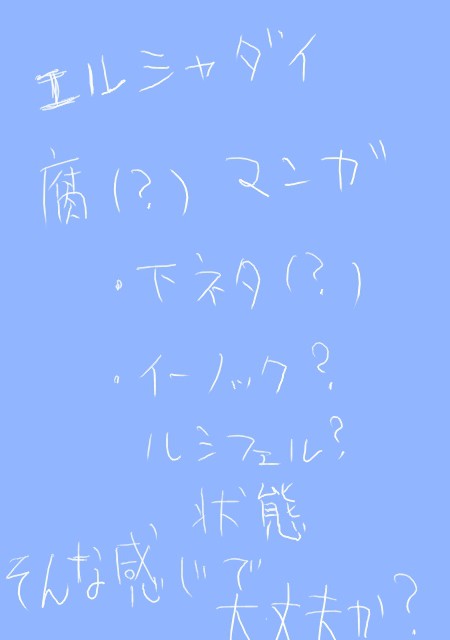 エルシャダイ
腐(?)マンガ
・下ネタ(?)
・イーノック?
ルシフェル?
状態
そんな感じで
大丈夫か?